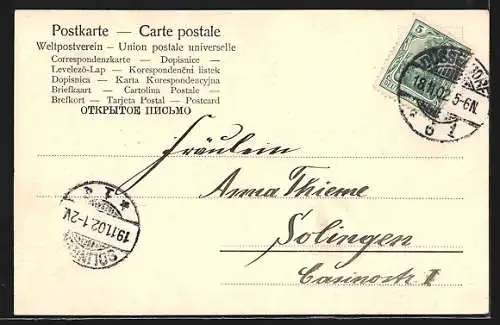 Postkarte — Carte postale
Weltpostverein – Union postale universelle
Correspondenzkarte – Dopisnice –
Levelező-Lap – Korespondenční listek
Dopisnica – Karta Korespondencyjna
Briefkaart – Cartolina Postale –
Brefkort – Tarjeta Postal – Postcard
ОТКРЫТОЕ ПИСЬМО
5
18.11.02 5-6N
* 1
Fräulein
Anna Thieme
Solingen
Casinostr. II
* 1 *
19.11.02.1-2V.
SOLINGEN